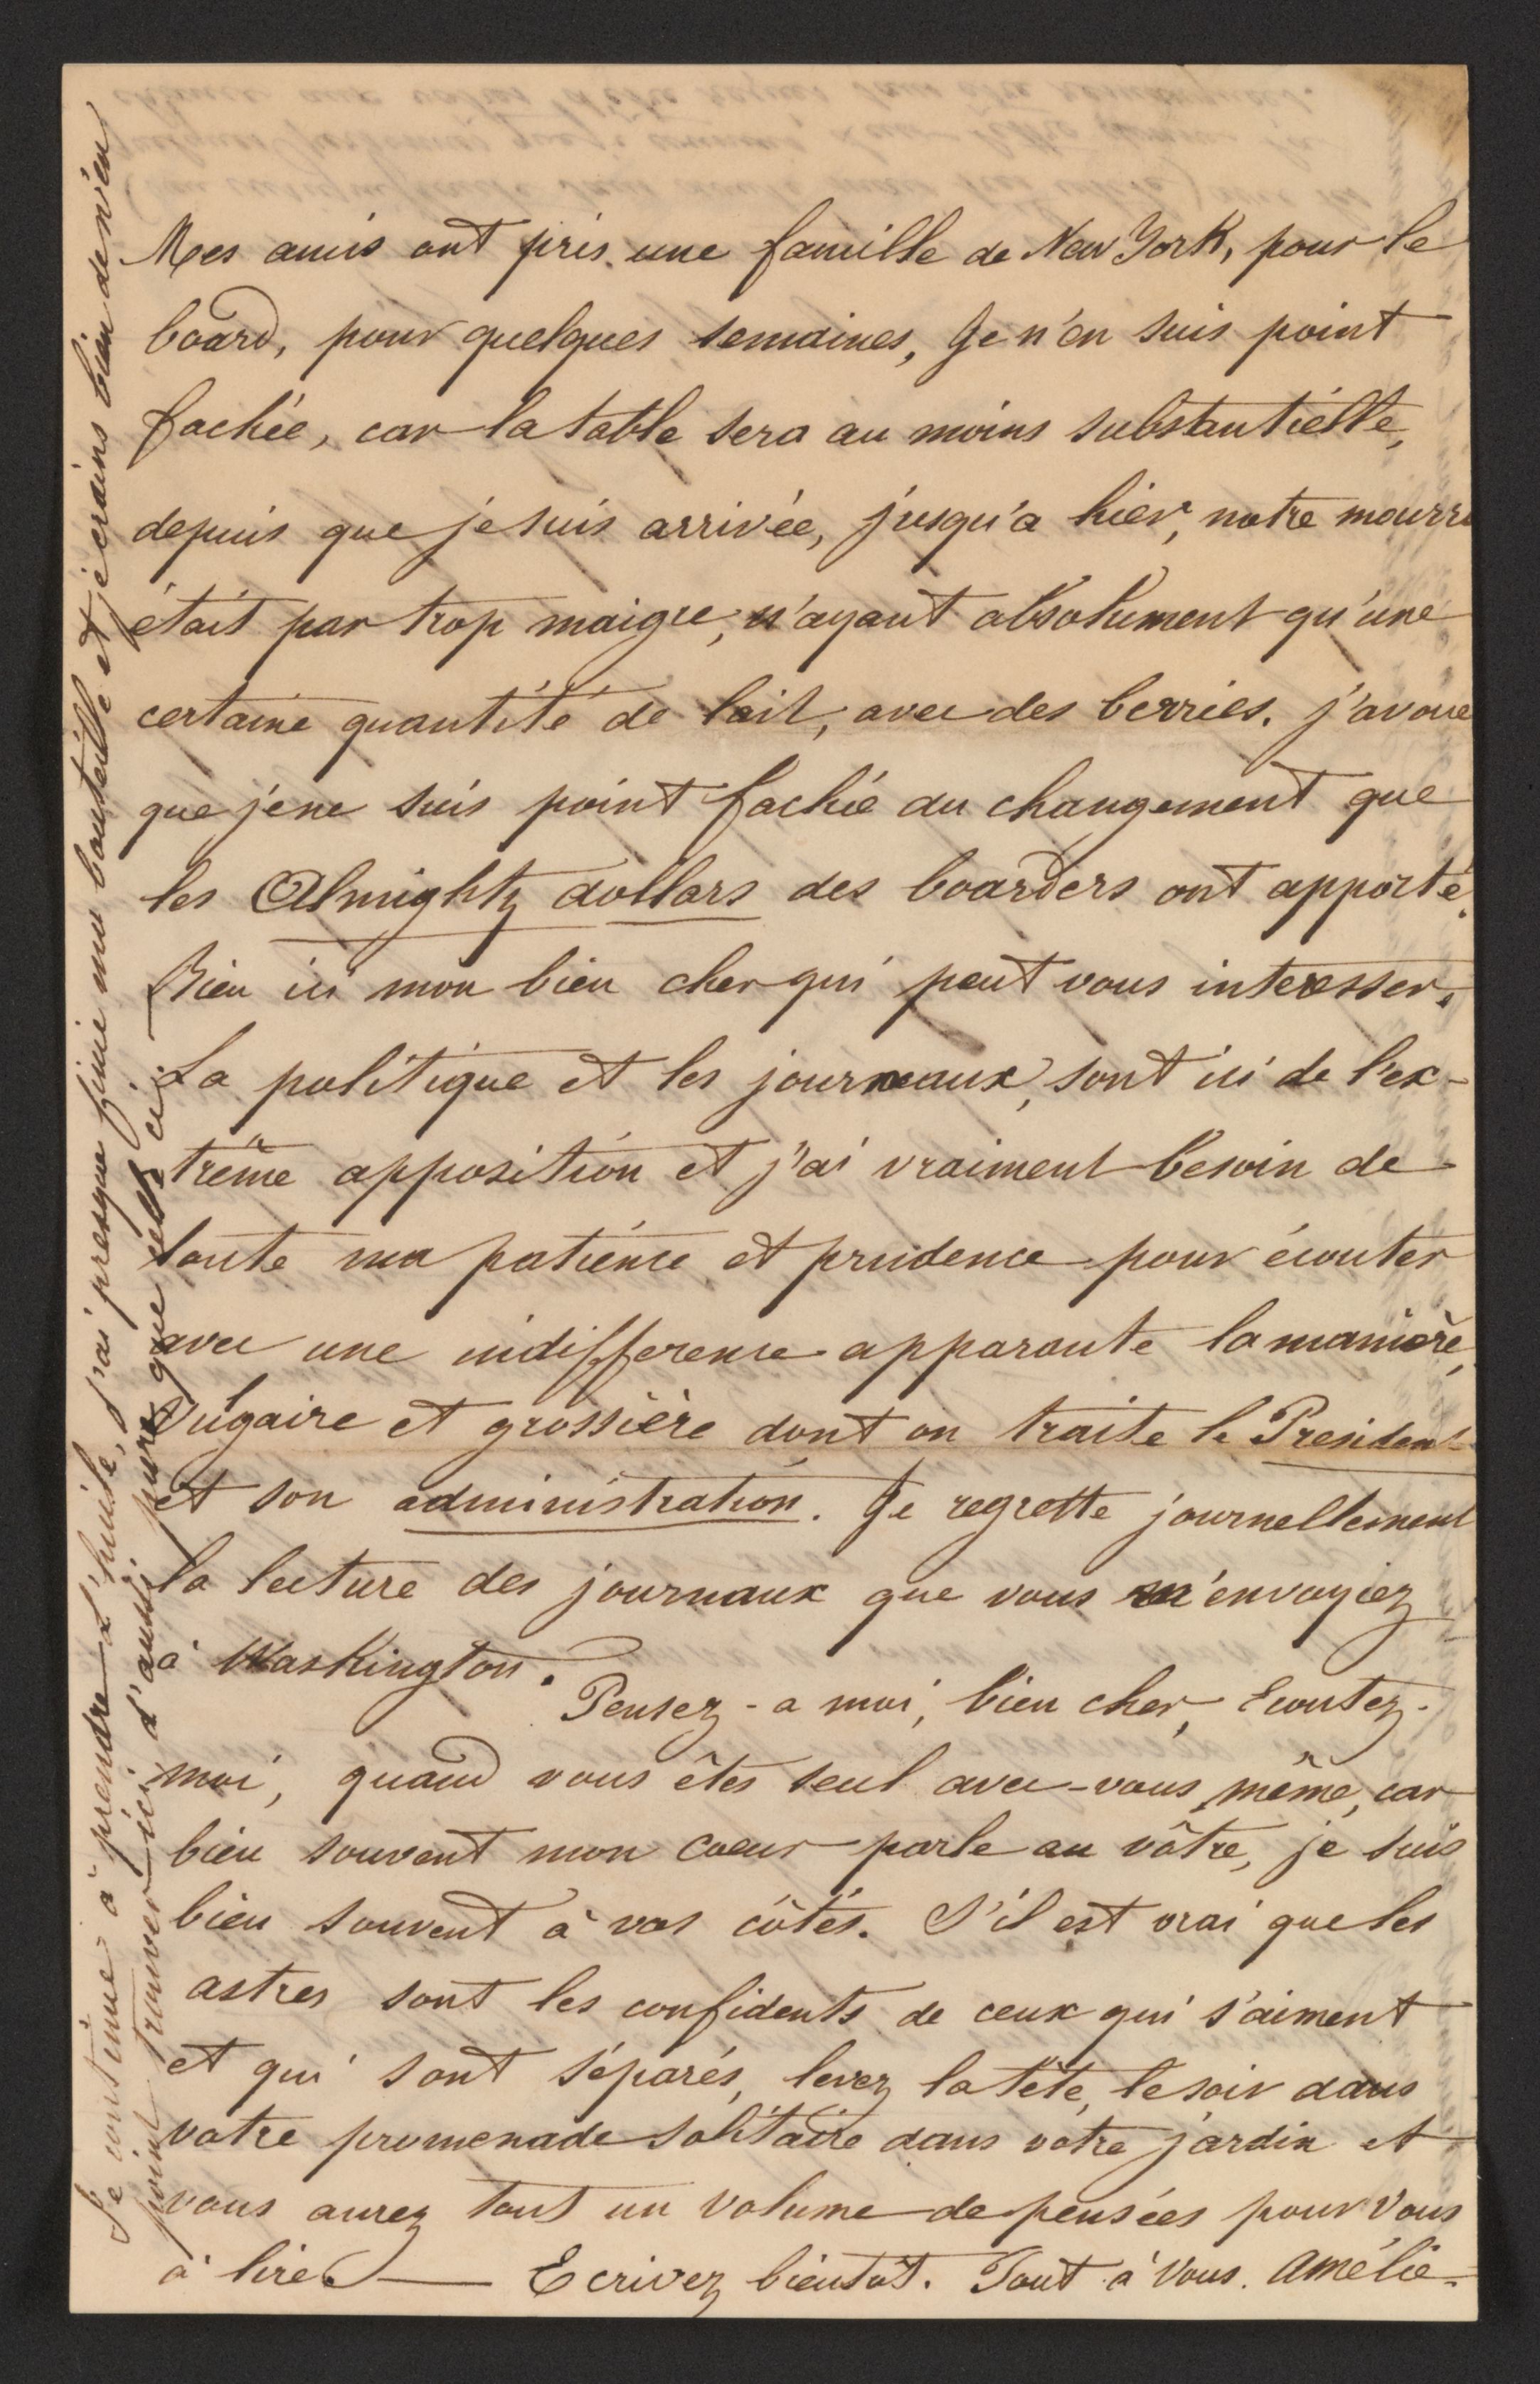 Mes amis ont pris une famille de New York, pour le
board, pour quelques semaines, Je n'en suis point
fachée, car la table sera au moins substantielle,
depuis que je suis arrivée, jusqu'a hier, notre mourri
était par trop maigre, n'ayant absolument qu'une
certaine quantité de lait, avec des berries. j'avoue
que je ne suis point fachée du changement que
les Almighty dollars des boarders ont apporté.
Rien ici mon bien cher qui peut vous interesser.
La politique et les journeaux, sont ici de l'ex-
trême apposition et j'ai vraiment besoin de
toute ma patience et prudence pour écouter
avec une indifference apparante la manière,
vulgaire et grossière dont on traite le President
et son administration. Je regrette journellement
la lecture des journaux que vous m'envoyiez
à Washington.
Pensez-a moi, bien cher, Ecoutez-
moi, quand vous êtes seul avec-vous même, car
bien souvent mon coeur parle au vôtre, je suis
bien souvent à vos côtés. S'il est vrai que les
astres sont les confidents de ceux qui s'aiment
et qui sont séparés, levez la tête, le soir dans
votre promenade solitaire dans votre jardin et
vous aurez tout un volume de pensées pour vous
à lire. — Ecrivez bientôt. Tout à Vous. Amélie.
Je continue à prendre l'huile, j'ai presque finie ma bouteille et je crains bien de n'en
point trouver ici d'aussi pure que celle ci. —